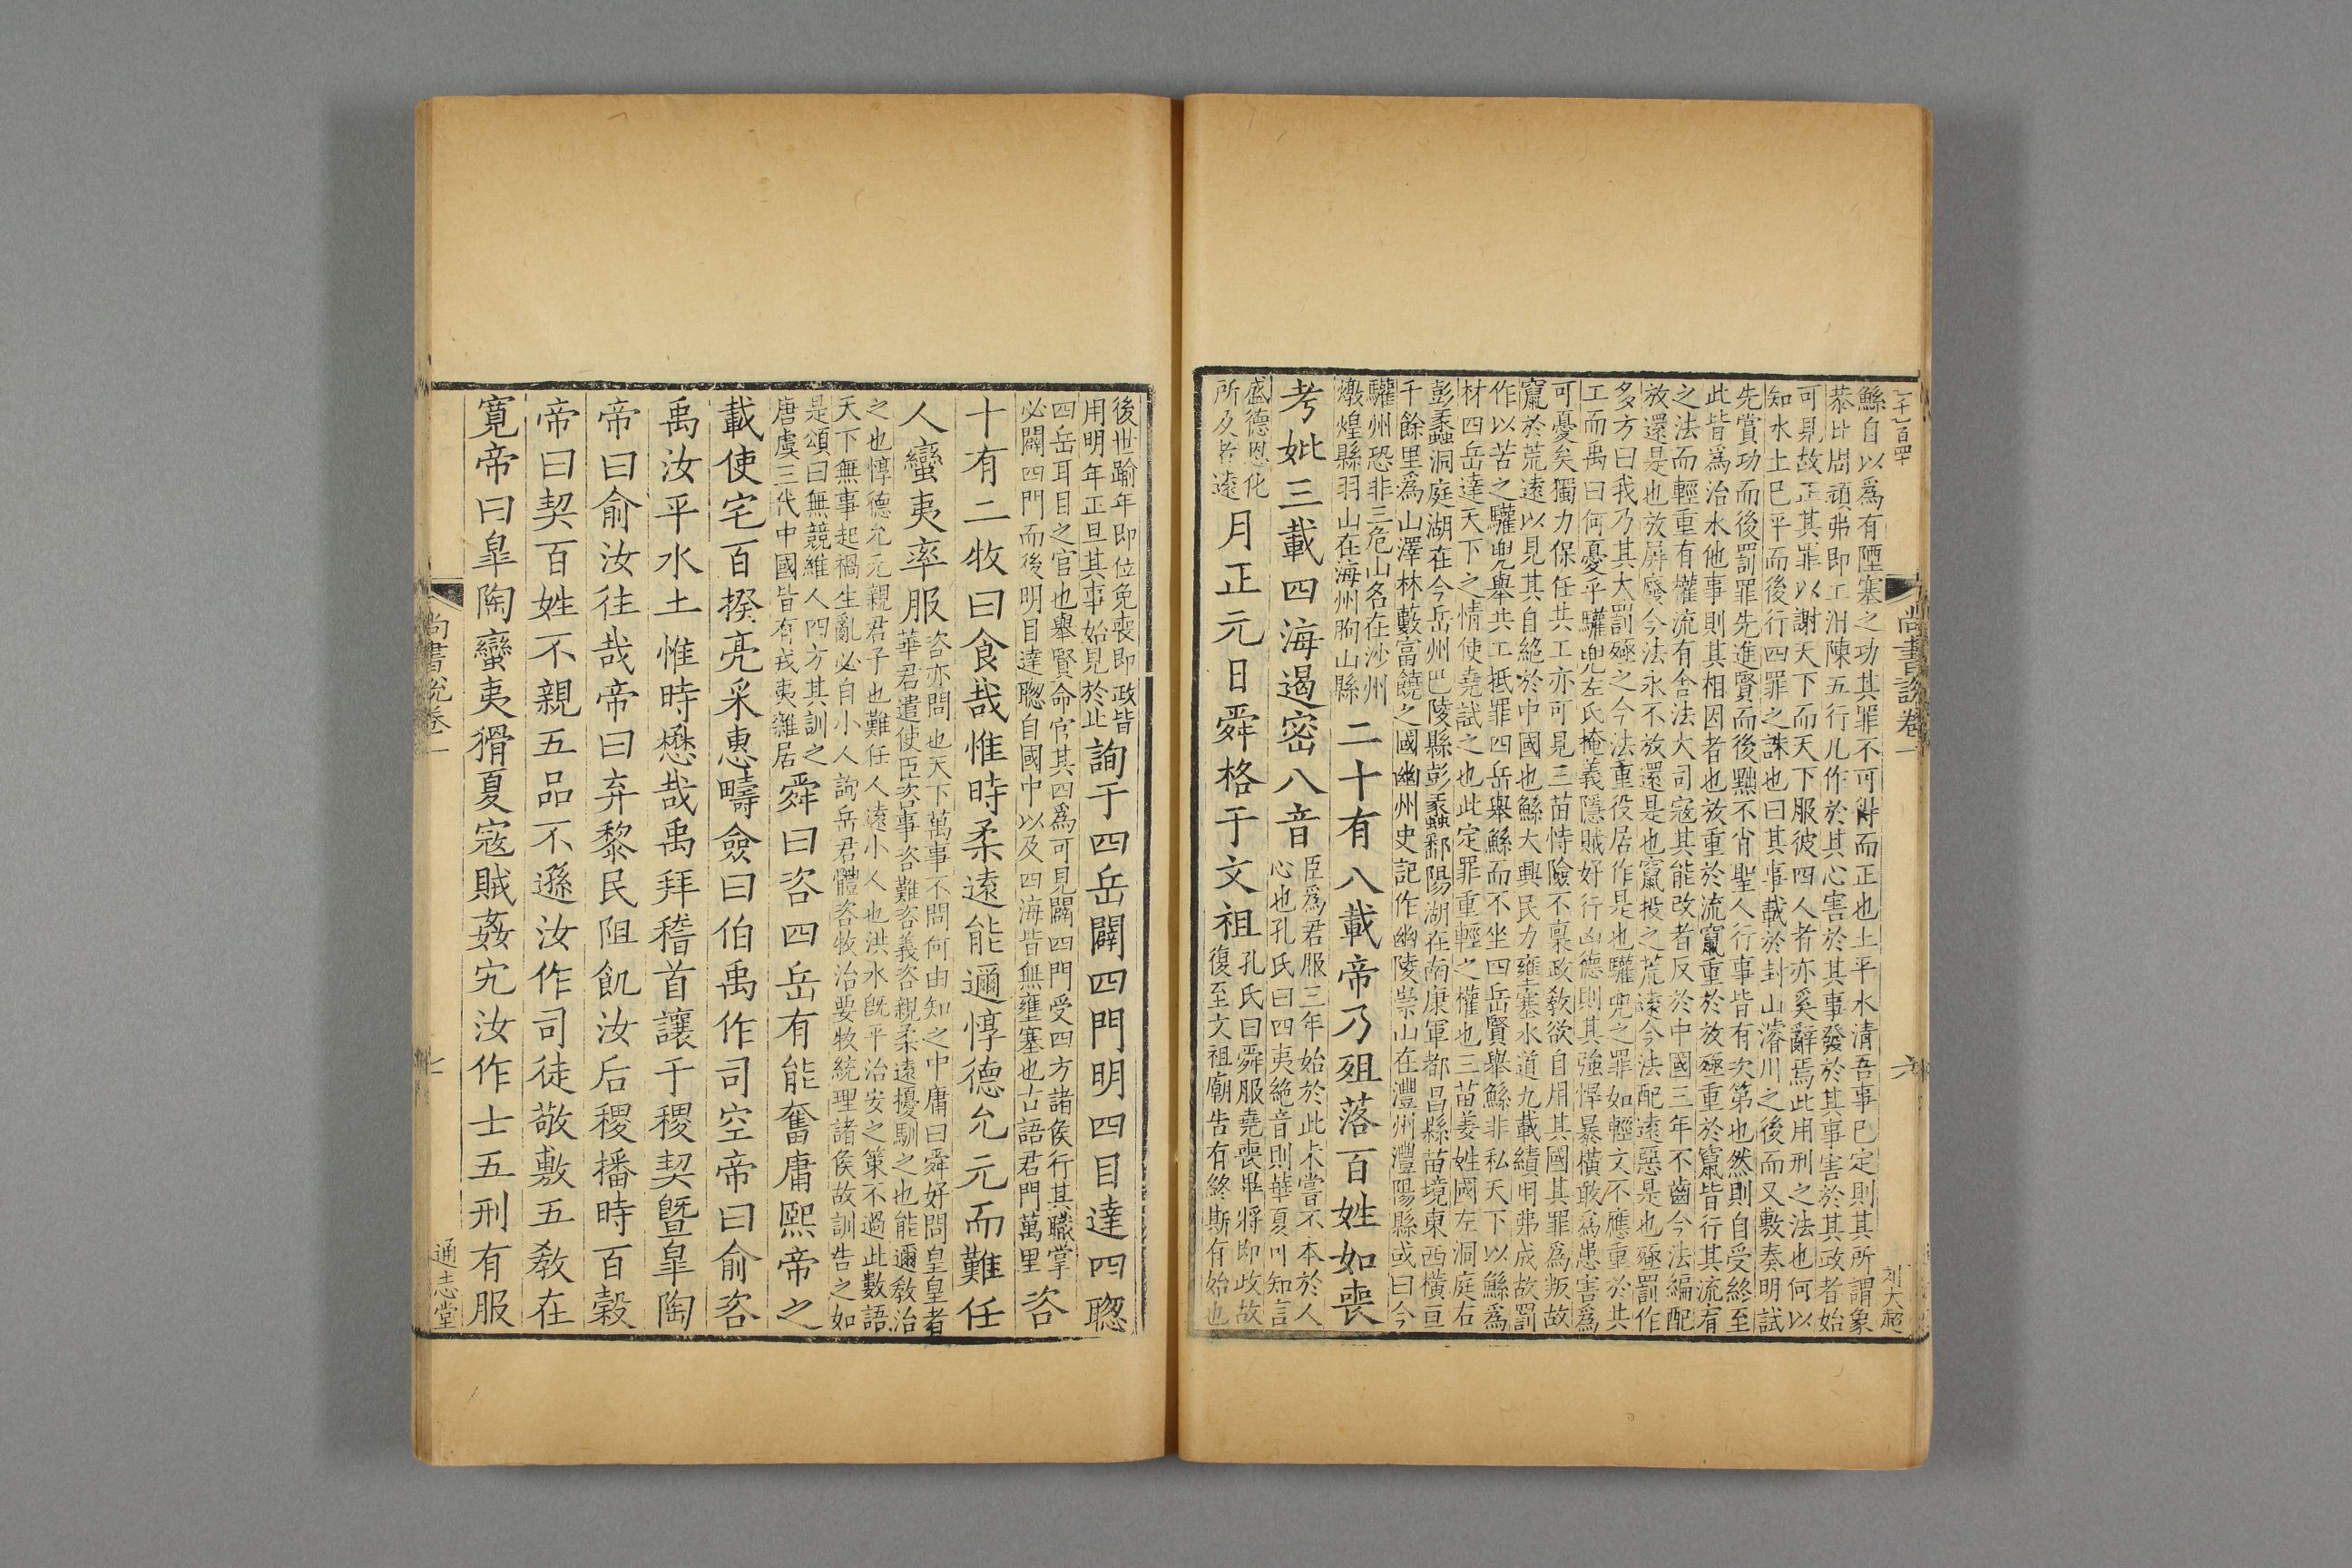 尚書說卷一
六
鯀自以爲有陻塞之功其罪不可得而正也土平水清吾事已定則其所謂象
恭比周頑弗即工汨陳五行凡作於其心害於其事發於其事害於其政者始
可見故正其罪以謝天下而天下服彼四人者亦奚辭焉此用刑之法也何以
知水土已平而後行四罪之誅也曰其事載於封山濬川之後而又敷奏明試
先賞功而後罰罪先進賢而後黜不肖聖人行事皆有次第也然則自受終至
此皆爲治水他事則其相因者也放重於流竄重於放殛重於竄皆行其流有
之法而輕重有權流有舍法大司寇其能改者反於中國三年不齒今法編配
放還是也放屏廢今法永不放還是也竄投之荒遠今法配遠惡是也殛罰作
多方曰我乃其大罰殛之今法重役居作是也驩兜之罪如輕文不應重於共
工而禹曰何憂乎驩兜左氏掩義隱賊好行凶德則其強悍暴橫敢爲患害爲
可憂矣獨力保任共工亦可見三苗恃險不稟政敎欲自用其國其罪爲叛故
竄於荒遠以見其自絕於中國也鯀大興民力雍塞水道九載績用弗成故罰
作以苦之驩兜舉共工抵罪四岳舉鯀而不坐四岳賢舉鯀非私天下以鯀爲
材四岳達天下之情使堯試之也此定罪重輕之權也三苗姜姓國左洞庭右
彭蠡洞庭湖在今岳州巴陵縣彭蠡鄱陽湖在南康軍都昌縣苗境東西橫亘
千餘里爲山澤林藪富饒之國幽州史記作幽陵崇山在澧州澧陽縣或曰今
驩州恐非三危山名在沙州
燉煌縣羽山在海州朐山縣
二十有八載帝乃殂落百姓如喪
考妣三載四海遏密八音
臣爲君服三年始於此未嘗不本於人
心也孔氏曰四夷絕音則華夏可知言
盛德恩化
所及者遠
月正元日舜格于文祖
孔氏曰舜服堯喪畢將即政故
復至文祖廟告有終斯有始也
後世踰年即位免喪即政皆
用明年正旦其事始見於此
詢于四岳闢四門明四目達四聰
四岳耳目之官也舉賢命官其四爲可見闢四門受四方諸侯行其職掌
必闢四門而後明目達聰自國中以及四海皆無壅塞也古語君門萬里
咨
十有二牧曰食哉惟時柔遠能邇惇德允元而難任
人蠻夷率服
咨亦問也天下萬事不問何由知之中庸曰舜好問皇皇者
華君遣使臣咨事咨難咨義咨親柔遠擾馴之也能邇敎治
之也惇德允元親君子也難任人遠小人也洪水旣平治安之策不過此數語
天下無事起禍生亂必自小人詢岳君體咨牧治要牧統理諸侯故訓告之如
是頌曰無競維人四方其訓之
唐虞三代中國皆有戎夷雜居
舜曰咨四岳有能奮庸熙帝之
載使宅百揆亮采惠疇僉曰伯禹作司空帝曰俞咨
禹汝平水土惟時懋哉禹拜稽首讓于稷契曁皐陶
帝曰俞汝往哉帝曰弃黎民阻飢汝后稷播時百穀
帝曰契百姓不親五品不遜汝作司徒敬敷五敎在
寬帝曰皐陶蠻夷猾夏寇賊姦宄汝作士五刑有服
尚書說卷一
通志堂